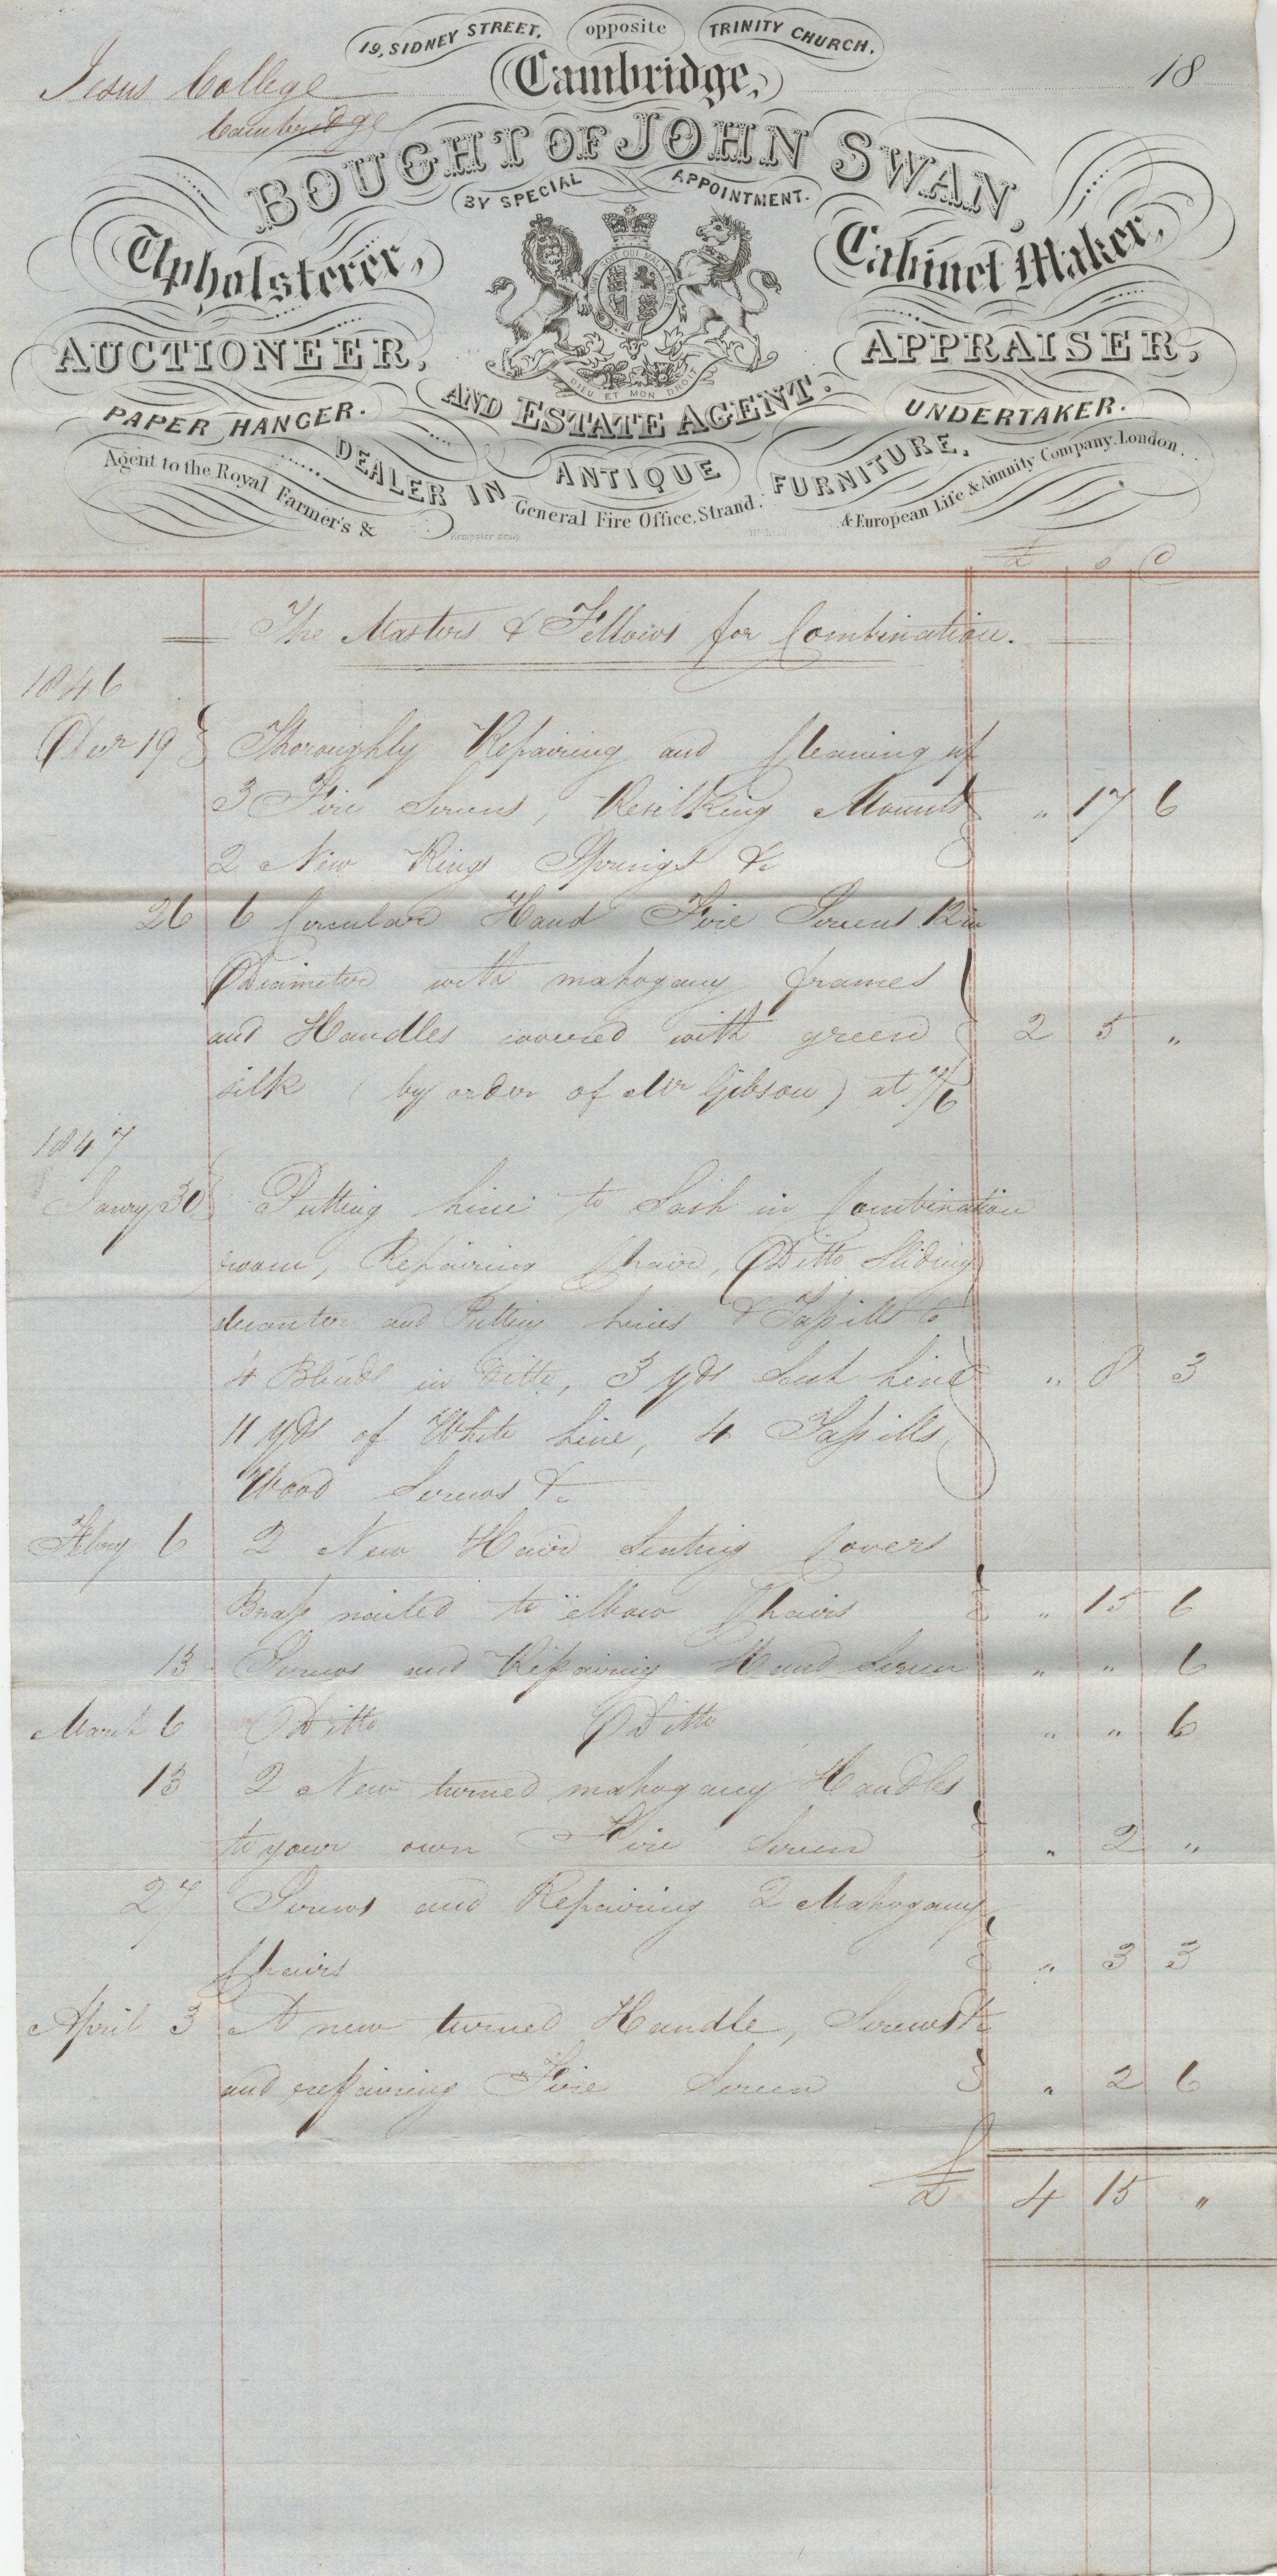 19, SIDNEY STREET, opposite TRINITY CHURCH,
Cambridge,
18
Jesus College
Cambridge
BOUGHT OF JOHN SWAN,
BY SPECIAL APPOINTMENT.
Upholsterer, Cabinet Maker,
HONI SOIT QUI MAL Y PENSE
DIEU ET MON DROIT
AUCTIONEER, APPRAISER,
AND ESTATE AGENT.
PAPER HANGER. UNDERTAKER.
DEALER IN ANTIQUE FURNITURE,
Agent to the Royal Farmer's & General Fire Office, Strand. & European Life & Annuity Company, London.
Kempster sculp.
£ s D
The Masters & Fellows for Combination.
1846
Decr 19 Thoroughly Repairing and Cleaning up
3 Fire Screens, Resilking Mounts " 17 6
2 New Rings Springs &c
26 6 Circular Hand Fire Screens 12 in
Diameter with mahogany frames
and Handles covered with green 2 5 "
silk (by order of Mr Gibson) at 7/6
1847
Janry 30 Putting Line to Sash in Combination
room, Repairing Chair, Ditto Sliding
decanter and Putting Lines & Tassills to
4 Blinds in Ditto, 3 yds Sash Line " 8 3
11 yds of White Line, 4 Tassills
Wood Screws &c
Febry 6 2 New Hair Seating Covers
Brass nailed to elbow Chairs " 15 6
13 Screws and Repairing Hand Screen " " 6
March 6 Ditto Ditto " " 6
13 2 New turned mahogany Handles
to your own Fire Screen " 2 "
27 Screws and Repairing 2 Mahogany
Chairs " 3 3
April 3 A new turned Handle, Screws &c
and repairing Fire Screen " 2 6
£ 4 15 "